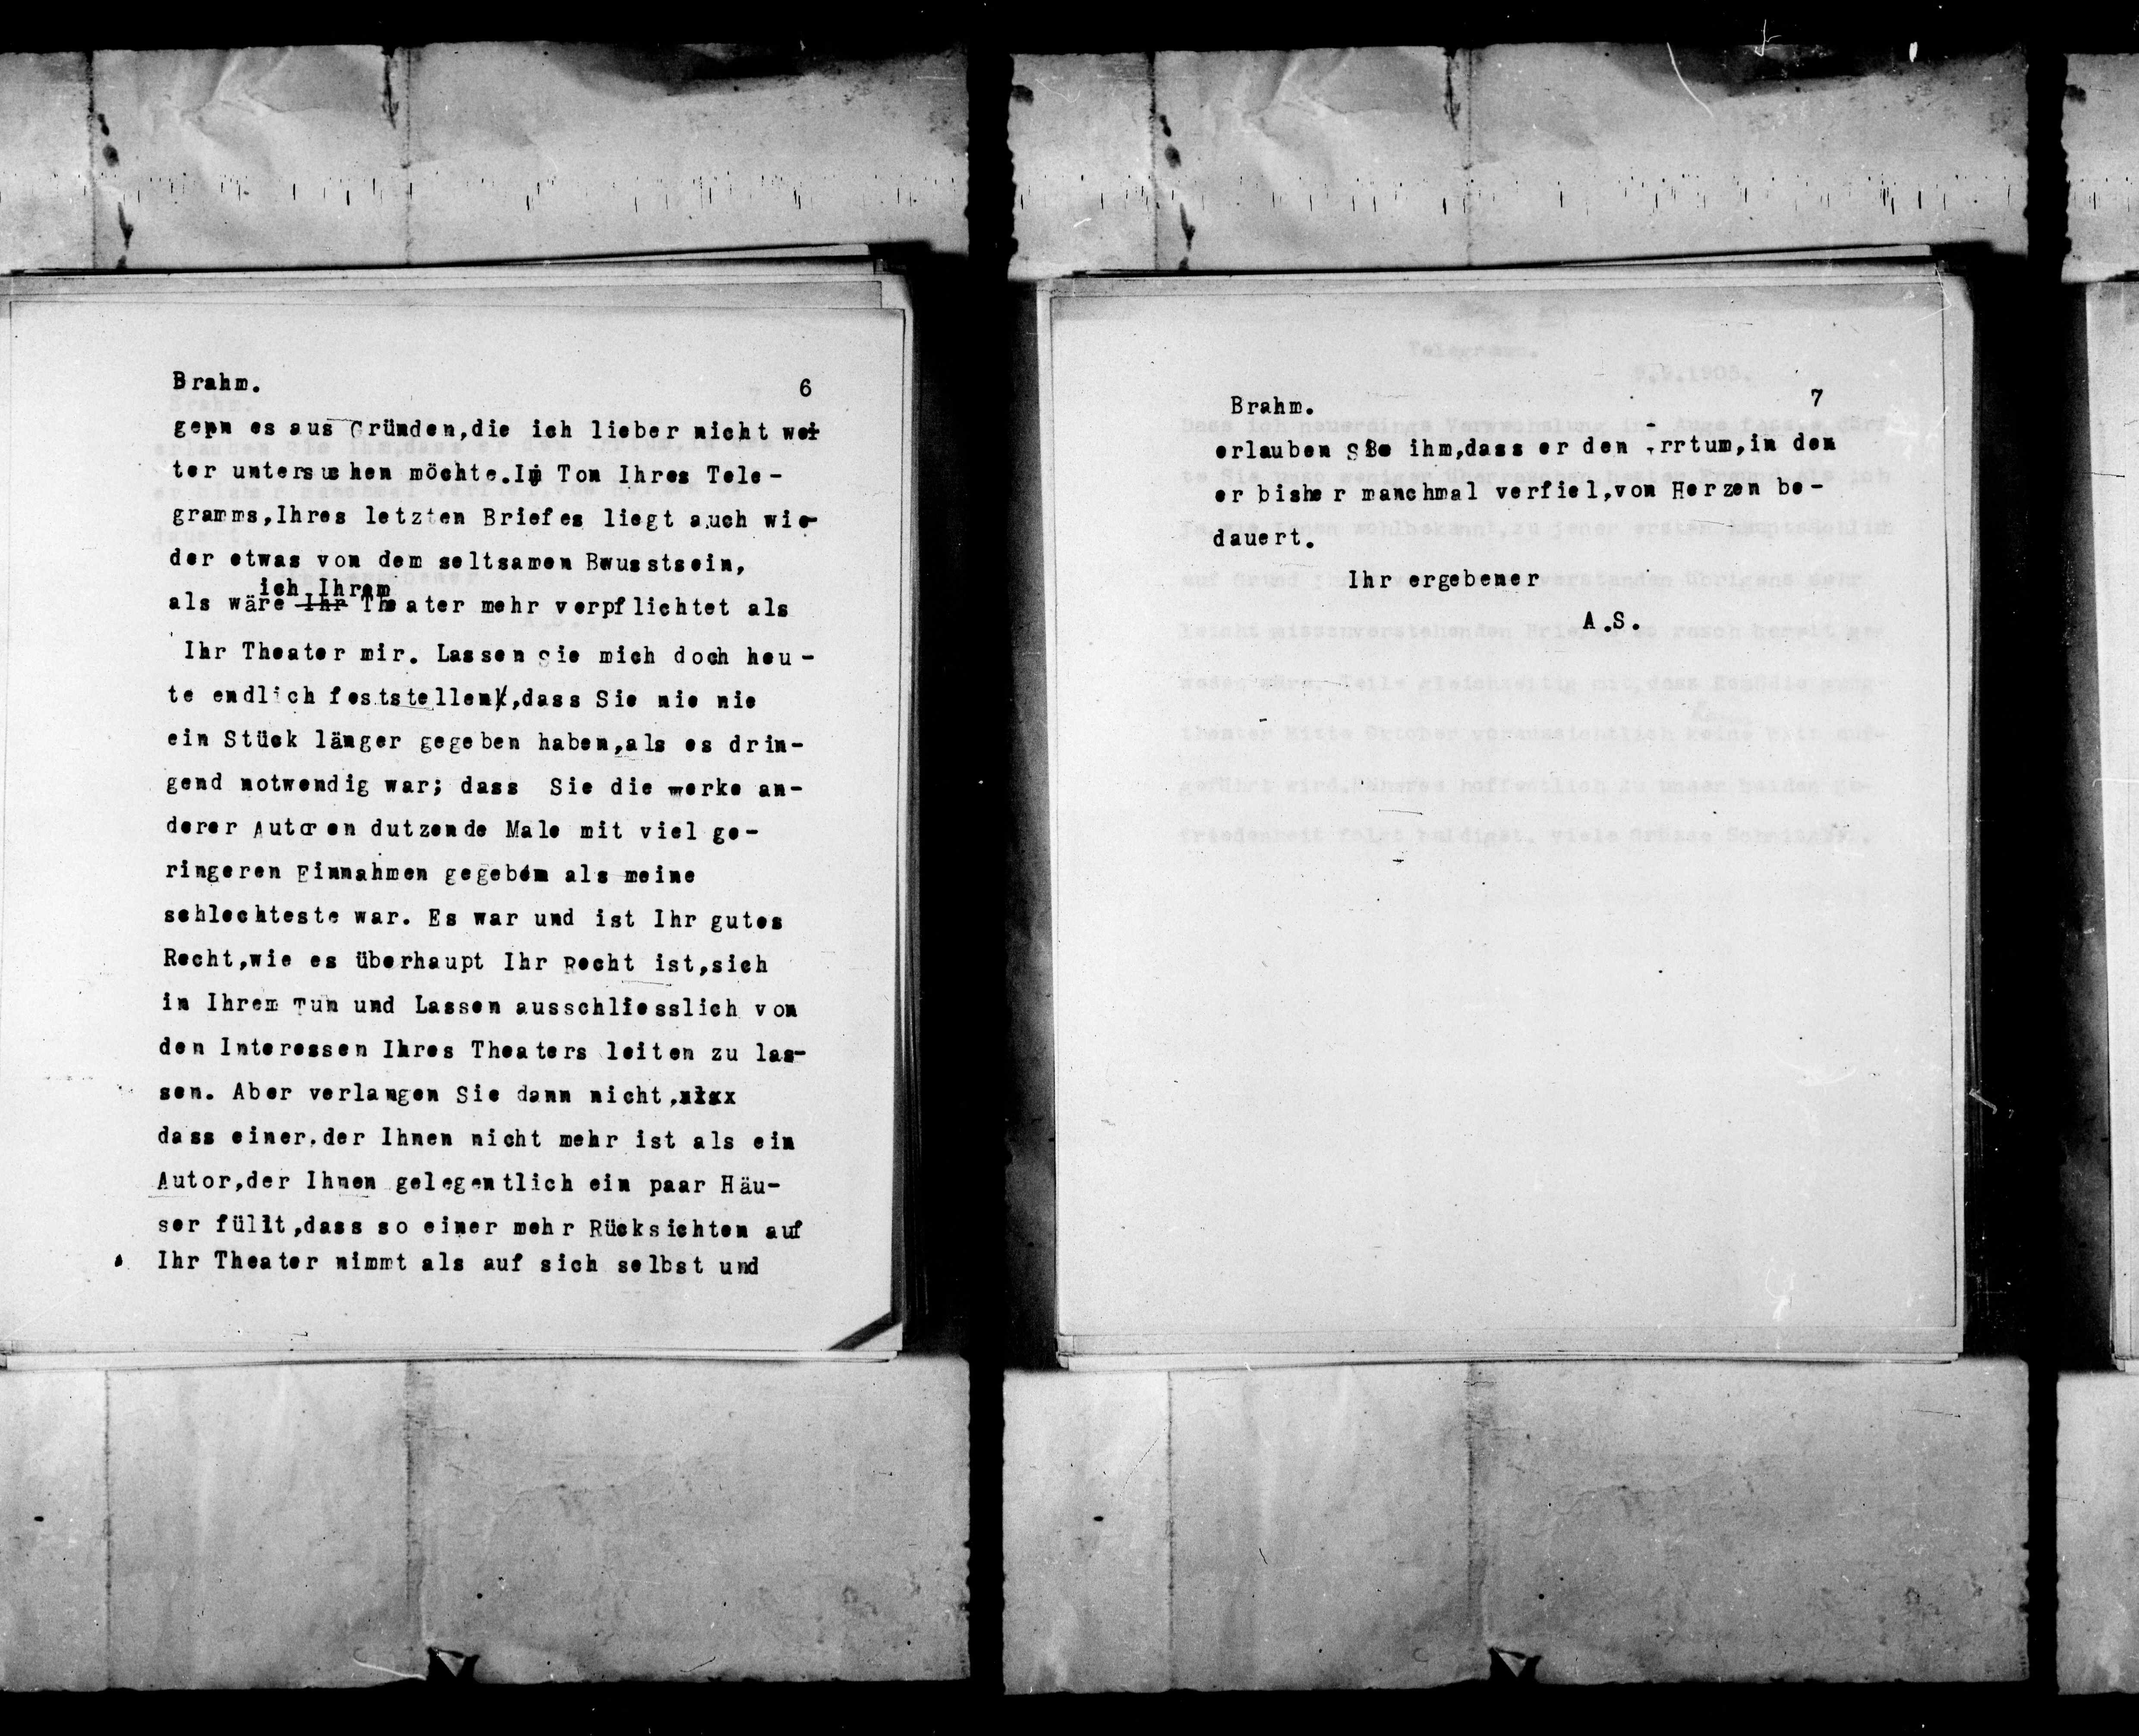 Brahm. 6
genn es aus Gründen,die ich lieber nicht wei
ter untersuchen möchte.Im Ton Ihres Tele-
gramms,Ihres letzten Briefes liegt auch wie-
der etwas von dem seltsamen Bwusstsein,
ich Ihrem
als wäre Ihr Theater mehr verpflichtet als
Ihr Theater mir. Lassen Sie mich doch heu-
te endlich feststellen,dass Sie nie nie
ein Stück länger gegeben haben,als es drin-
gend notwendig war; dass Sie die Werke an-
derer Autoren dutzende Male mit viel ge-
ringeren Einnahmen gegeben als meine
schlechteste war. Es war und ist Ihr gutes
Recht,wie es überhaupt Ihr Recht ist,sich
in Ihrem Tun und Lassen ausschliesslich von
den Interessen Ihres Theaters leiten zu las-
sen. Aber verlangen Sie dann nicht,
dass einer,der Ihnen nicht mehr ist als ein
Autor,der Ihnen gelegentlich ein paar Häu-
ser füllt,dass so einer mehr Rücksichten auf
Ihr Theater nimmt als auf sich selbst und
Brahm. 7
erlauben Sie ihm,dass er den Irrtum,in den
er bisher manchmal verfiel,von Herzen be-
dauert.
Ihr ergebener
A.S.